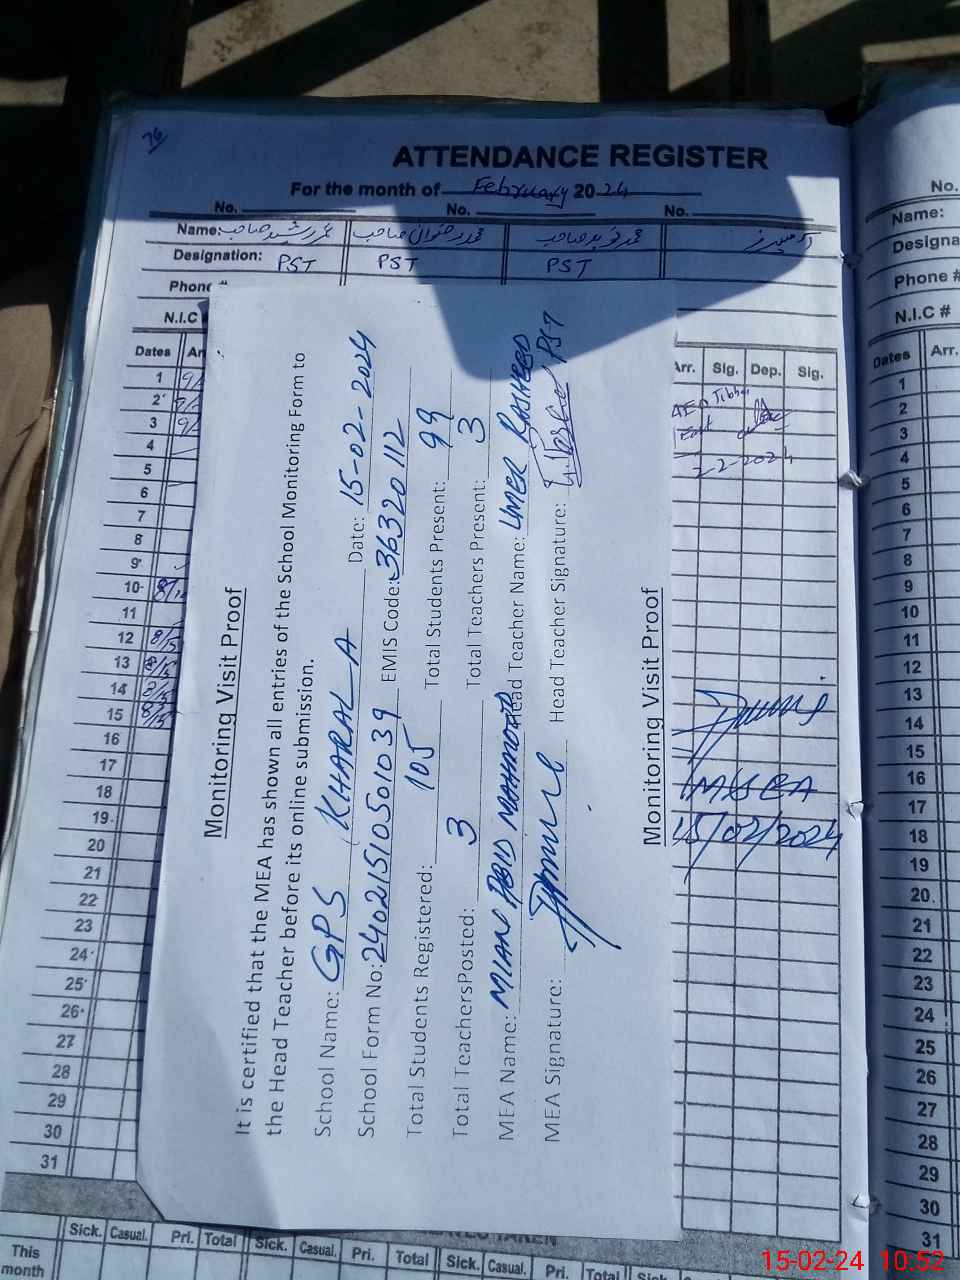 76
ATTENDANCE REGISTER
For the month of February 2024
No. No. No.
Name: عمر رشید صاحب محمد رضوان صاحب محمد نوید صاحب
Designation: PST PST PST
Phone #
N.I.C #
Dates Arr. Sig. Dep. Sig.
1
2
3
4
5
6
7
8
9
10
11
12
13
14
15
16
17
18
19
20
21
22
23
24
25
26
27
28
29
30
31
East
2-2-2024
15/02/2024
Monitoring Visit Proof
It is certified that the MEA has shown all entries of the School Monitoring Form to
the Head Teacher before its online submission.
School Name: GPS KHARAL A Date: 15-02-2024
School Form No: 24021510501039 EMIS Code: 36320112
Total Students Registered: 105 Total Students Present: 99
Total TeachersPosted: 3 Total Teachers Present: 3
MEA Name: MIAN ABID MAHMOOD Head Teacher Name: UMER RASHEED PST
MEA Signature: Head Teacher Signature:
Monitoring Visit Proof
Sick. Casual. Pri. Total Sick. Casual. Pri. Total Sick. Casual. Pri. Total Sick.
This
month
No.
Name:
Designa
Phone #
N.I.C #
Dates Arr.
1
2
3
4
5
6
7
8
9
10
11
12
13
14
15
16
17
18
19
20
21
22
23
24
25
26
27
28
29
30
31
15-02-24 10:52